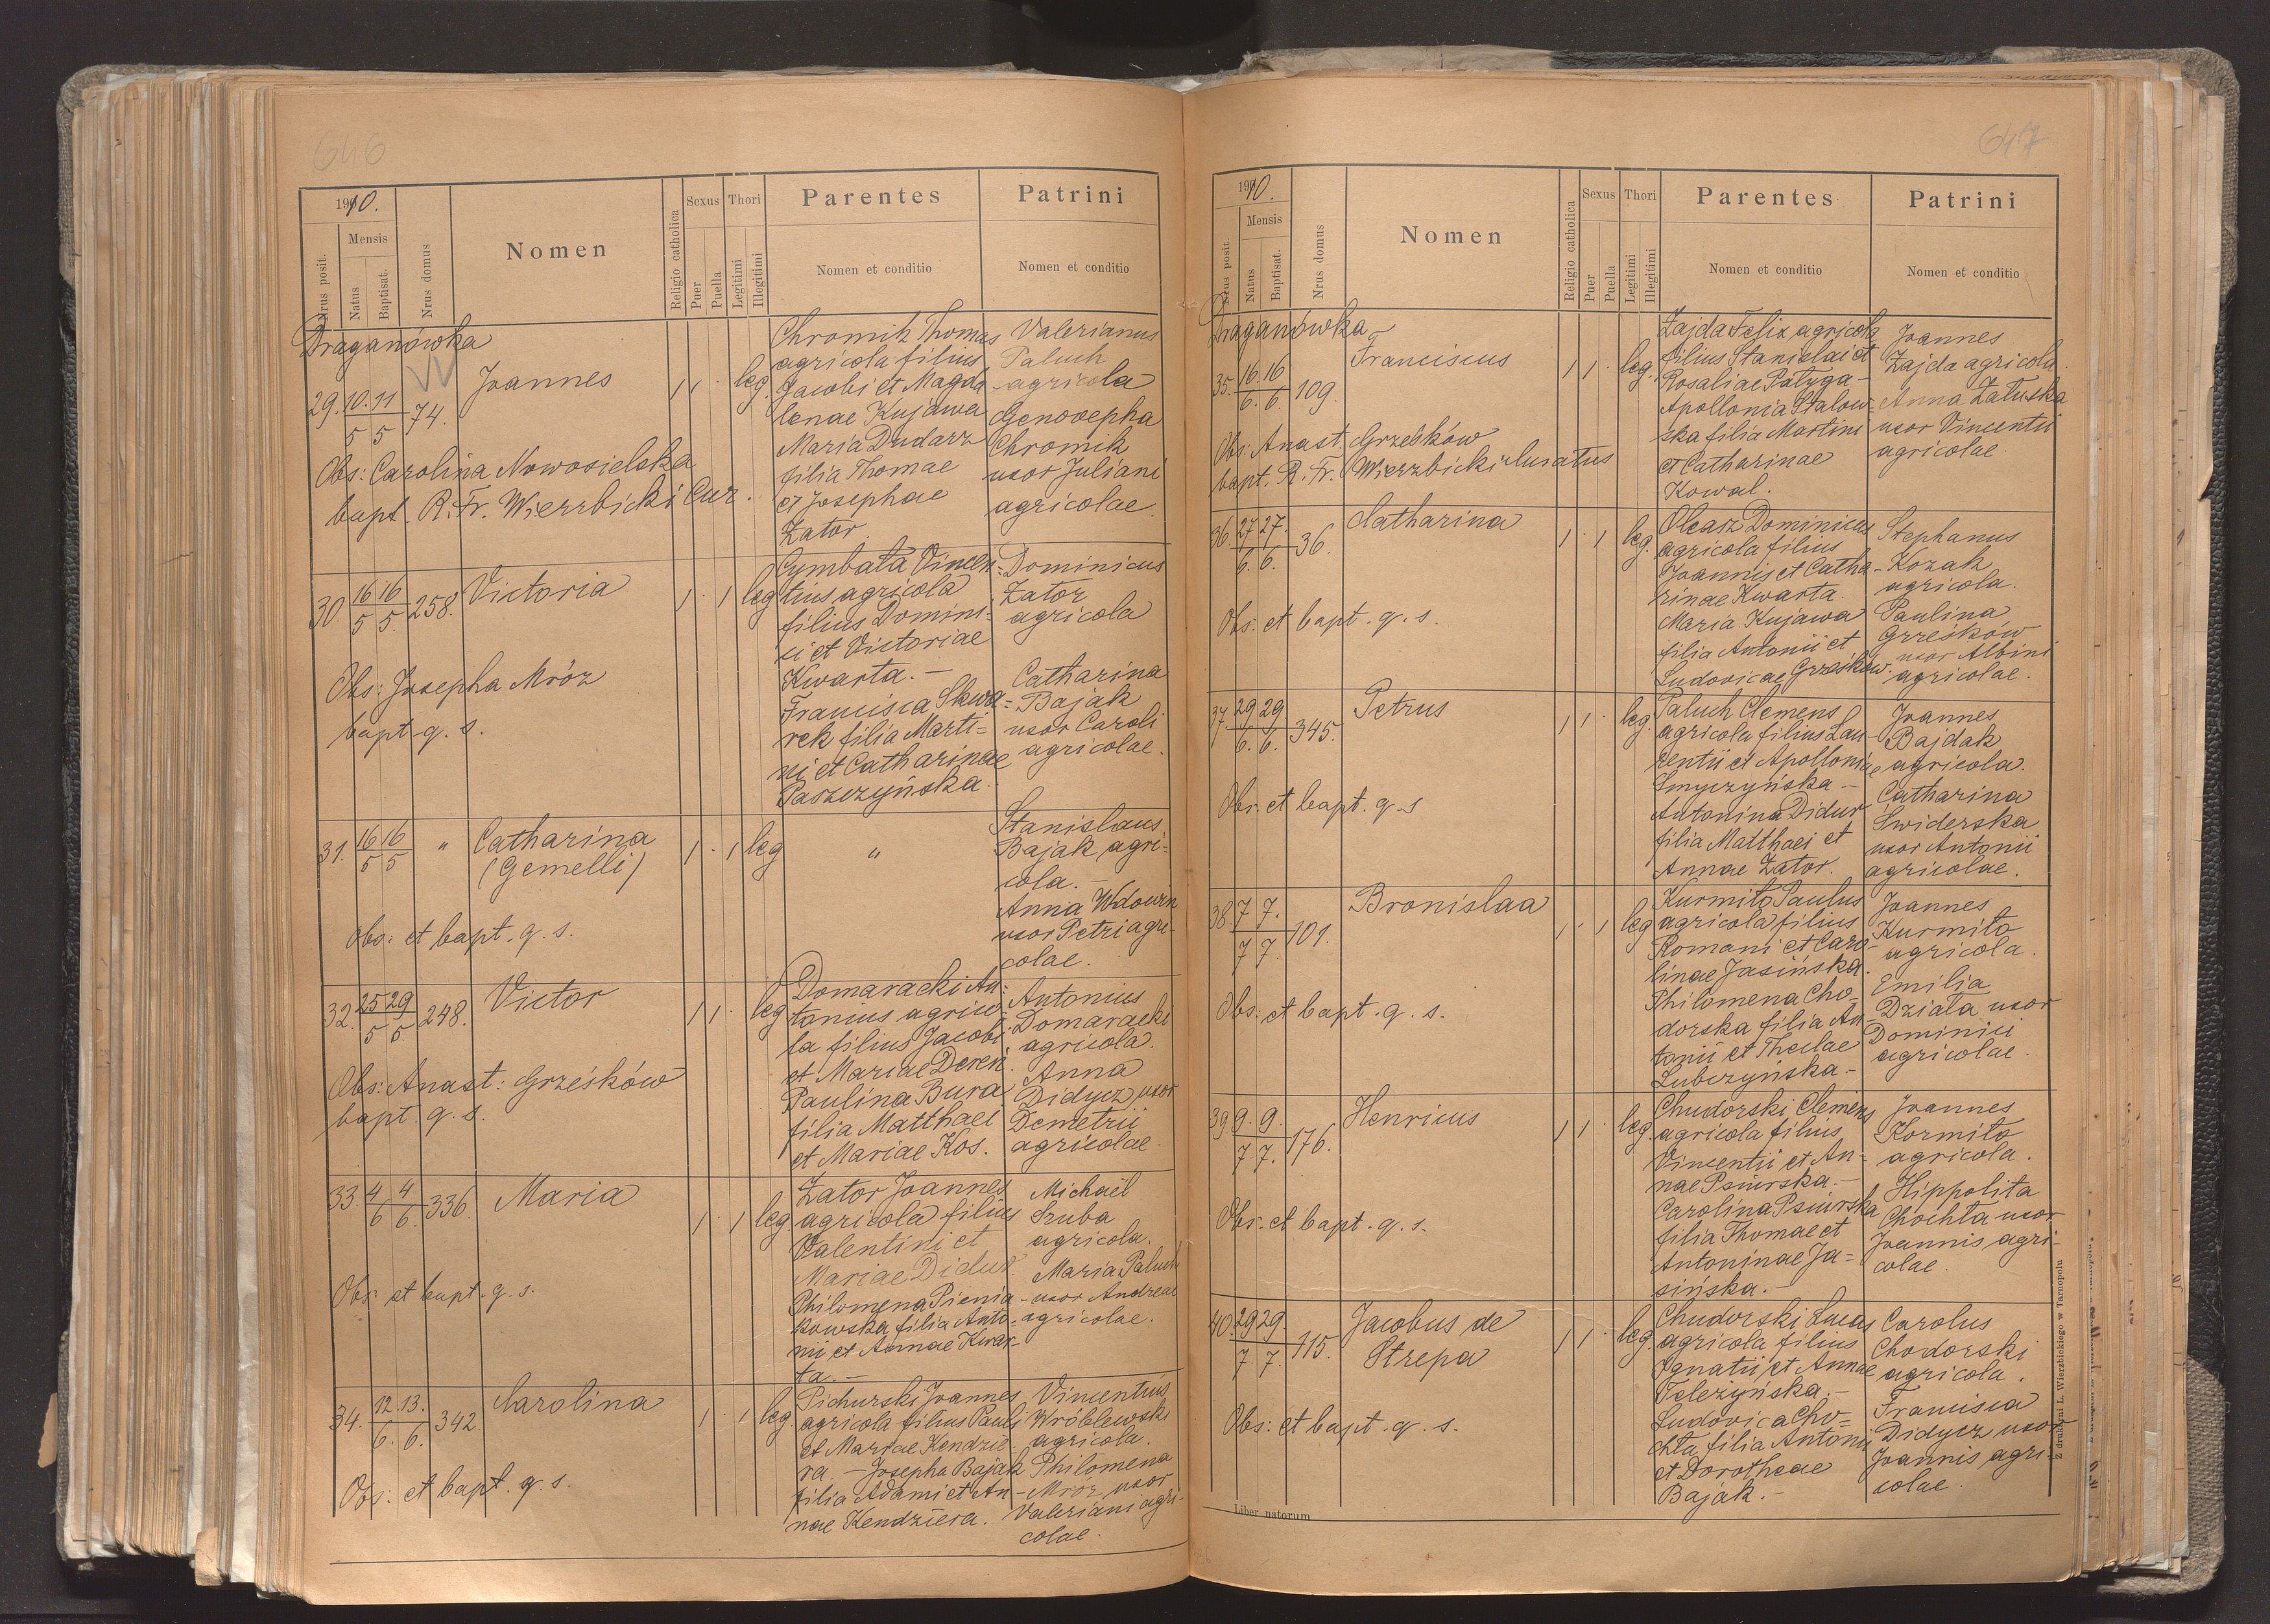 646
1910.
Mensis
Nrus posit.
Natus
Baptisat.
Nrus domus
Nomen
Religio catholica
Sexus
Puer
Puella
Thori
Legitimi
Illegitimi
Parentes
Nomen et conditio
Patrini
Nomen et conditio
Draganówka
29. 10. 11 / 5 5 74.
Joannes
1 1 · leg.
Chromik Thomas
agricola filius
Jacobi et Magda
lenae Kujawa
Maria Dudarz
filia Thomae
et Josephae
Zator.
Valerianus
Paluch
agricola
Genovepha
Chromik
uxor Juliani
agricolae.
Obs: Carolina Nowosielska
bapt. R. Fr. Wierzbicki Cur.
30. 16 16 / 5 5. 258.
Victoria
1 · 1 leg
Cymbała Vincen-
tius agricola
filius Domini-
ci et Victoriae
Kwarta. —
Francisca Skwa-
rek filia Marti=
ni et Catharinae
Paszczyńska.
Dominicus
Zator
agricola
Catharina
Bajak
uxor Caroli
agricolae.
Obs: Josepha Mróz
bapt. q. s.
31. 16 16 / 5 5 "
Catharina
(Gemelli)
1 · 1 leg
"
Stanislaus
Bajak agri=
cola. —
Anna Wdown
uxor Petri agri-
colae.
Obs: et bapt. q. s.
32. 25 29 / 5 5. 248.
Victor
1 1 · leg
Domaracki An=
tonius agrico-
la filius Jacobi
et Mariae Dereń.
Paulina Bura
filia Matthaei
et Mariae Kos.
Antonius
Domaracki
agricola.
Anna
Didycz uxor
Demetrii
agricolae.
Obs: Anast: Grześków
bapt. q. s.
33. 4 4 / 6 6. 336.
Maria
1 · 1 leg
Zator Joannes
agricola filius
Valentini et
Mariae Didur.
Philomena Pienia-
kowska filia Anto-
nii et Annae Kwar-
ta. —
Michaël
Szuba
agricola.
Maria Paluch
uxor Andreae
agricolae.
Obs: et bapt. q. s.
34. 12. 13. / 6. 6. 342.
Carolina
1 · 1 leg.
Pichurski Joannes
agricola filius Pauli
et Mariae Kendzie-
ra. — Josepha Bajak
filia Adami et An-
nae Kendziera.
Vincentius
Wróblewski
agricola.
Philomena
Mróz, uxor
Valeriani agri-
colae.
Obs: et bapt. q. s.
647
1910.
Mensis
Nrus posit.
Natus
Baptisat.
Nrus domus
Nomen
Religio catholica
Sexus
Puer
Puella
Thori
Legitimi
Illegitimi
Parentes
Nomen et conditio
Patrini
Nomen et conditio
Draganówka
35. 16. 16 / 6. 6. 109.
Franciscus
1 1 · leg.
Zajda Felix agricola
filius Stanislai et
Rosaliae Patyga-
Apollonia Stalow-
ska filia Martini
et Catharinae
Kowal.
Joannes
Zajda agricola.
Anna Załuska
uxor Vincentii
agricolae.
Obs: Anast. Grześków
bapt. R. Fr. Wierzbicki Curatus
36. 27 27. / 6. 6. 36.
Catharina
1 · 1 leg.
Olearz Dominicus
agricola filius
Joannis et Catha-
rinae Kwarta.
Maria Kujawa
filia Antonii et
Ludovicae Grześków.
Stephanus
Kozak
agricola.
Paulina
Grześków
uxor Albini
agricolae.
Obs: et bapt. q. s.
37. 29 29 / 6. 6. 345.
Petrus
1 1 · leg.
Paluch Clemens
agricola filius Lau-
rentii et Apolloniae
Smyczyńska. —
Antonina Didur
filia Matthaei et
Annae Zator.
Joannes
Bajdak
agricola.
Catharina
Świderska
uxor Antonii
agricolae.
Obs: et bapt. q. s
38. 7 7. / 7 7. 101.
Bronislaa
1 · 1 leg
Kurmito Paulus
agricola filius
Romani et Caro-
linae Jasińska.
Philomena Cho-
dorska filia An-
tonii et Theclae
Lubczyńska. —
Joannes
Kurmito
agricola.
Emilia
Działa uxor
Dominici
agricolae.
Obs: et bapt. q. s.
39. 9. 9. / 7 7. 176.
Henricus
1 1 · leg.
Chudorski Clemens
agricola filius
Vincentii et An=
nae Psiurska. —
Carolina Psiurska
filia Thomae et
Antoninae Ja=
sińska. —
Joannes
Kormito
agricola.
Hippolita
Chochta uxor
Joannis agri-
colae
Obs: et bapt. q. s.
40. 29 29. / 7. 7. 115.
Jacobus de
Strepa
1 1 · leg.
Chudorski Lucas
agricola filius
Ignatii et Annae
Teleżyńska. —
Ludovica Cho=
chta filia Antonii
et Dorotheae
Bajak. —
Carolus
Chodorski
agricola.
Francisca
Didycz uxor
Joannis agri-
colae.
Obs: et bapt. q. s.
Liber natorum
Z drukarni L. Wierzbickiego w Tarnopolu